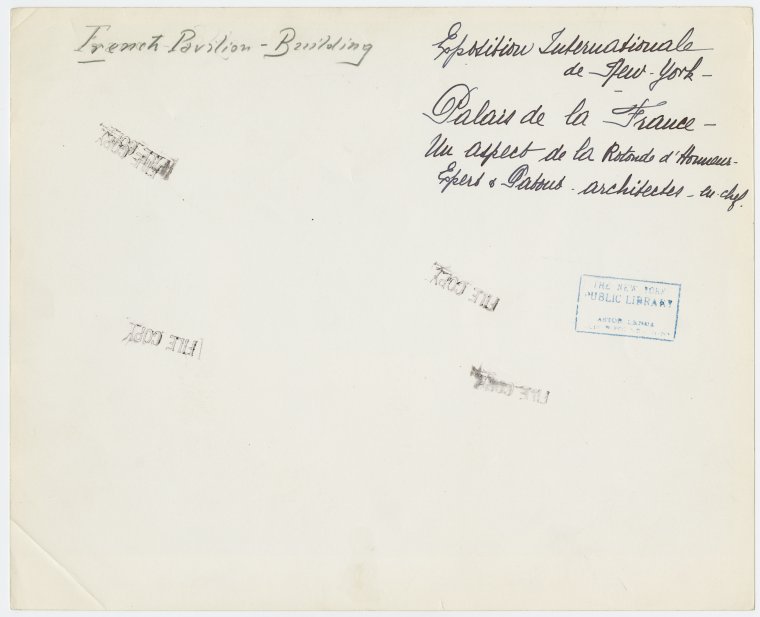 French Pavilion - Building
Exposition Internationale
de New-York -
Palais de la France -
Un aspect de la Rotonde d'Honneur -
Expert & Patout - architectes - en chef.
FILE COPY
FILE COPY
FILE COPY
FILE COPY
THE NEW YORK
PUBLIC LIBRARY
ASTOR LENOX